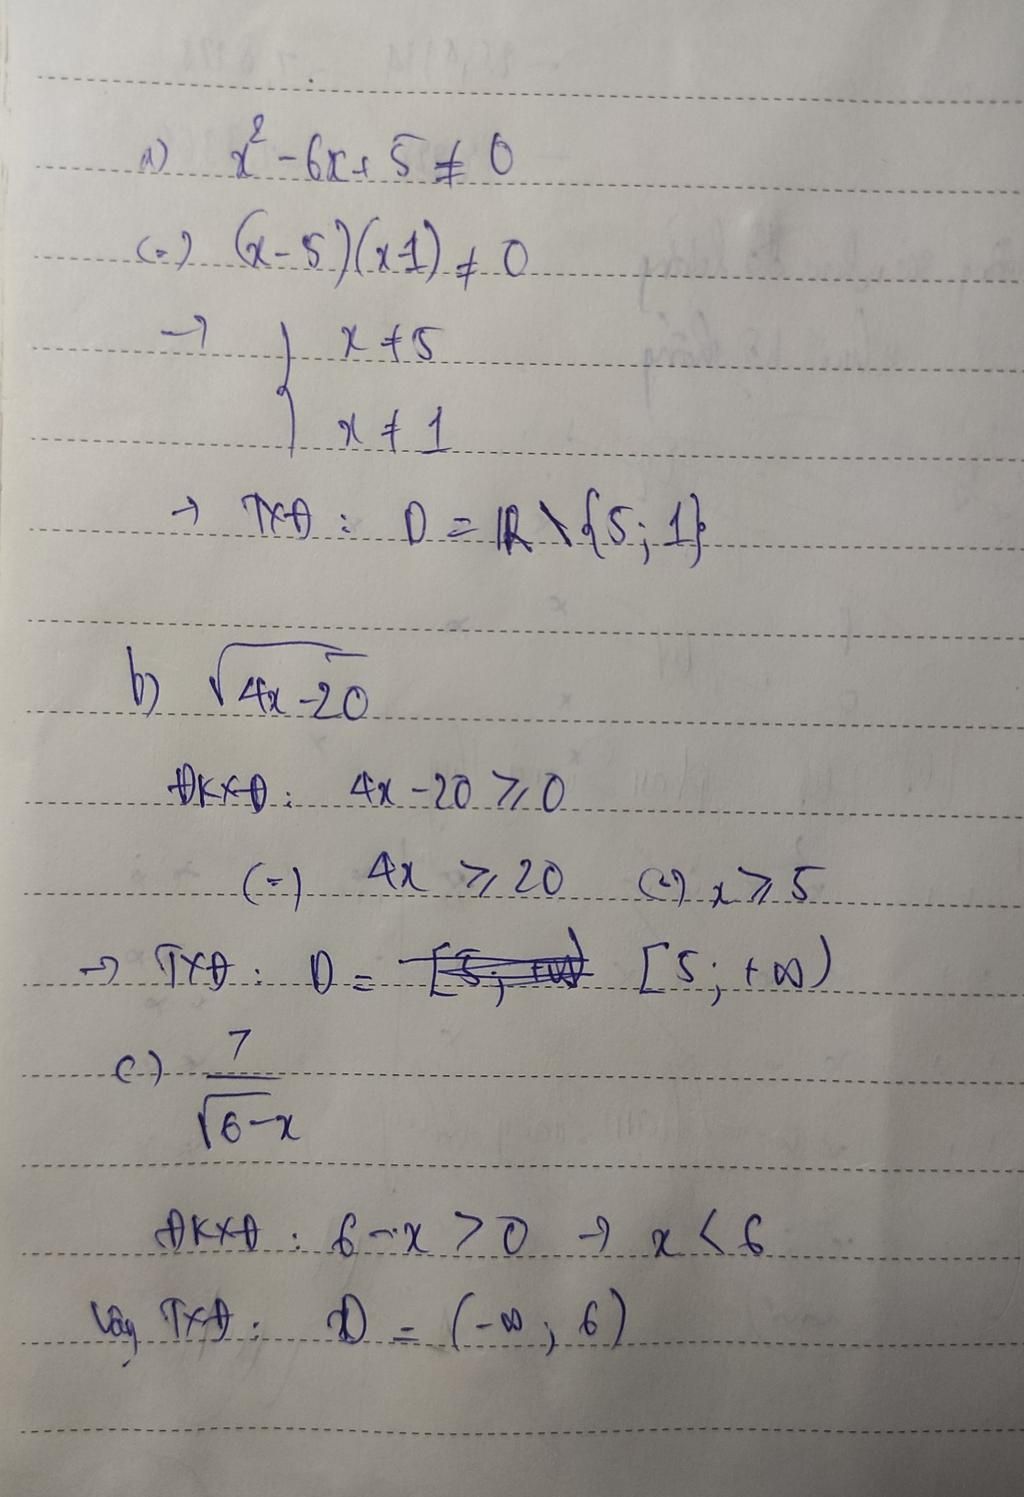 a) x² - 6x + 5 ≠ 0
(=) (x-5)(x-1) ≠ 0
→ { x ≠ 5
x ≠ 1
→ TXĐ : D = ℝ \ {5; 1}
b) √(4x-20)
ĐKXĐ : 4x - 20 ⩾ 0
(=) 4x ⩾ 20 (=) x ⩾ 5
→ TXĐ : D = [5; +∞) [5; +∞)
c) 7/√(6-x)
ĐKXĐ : 6 - x > 0 → x < 6
Vậy TXĐ : D = (-∞; 6)